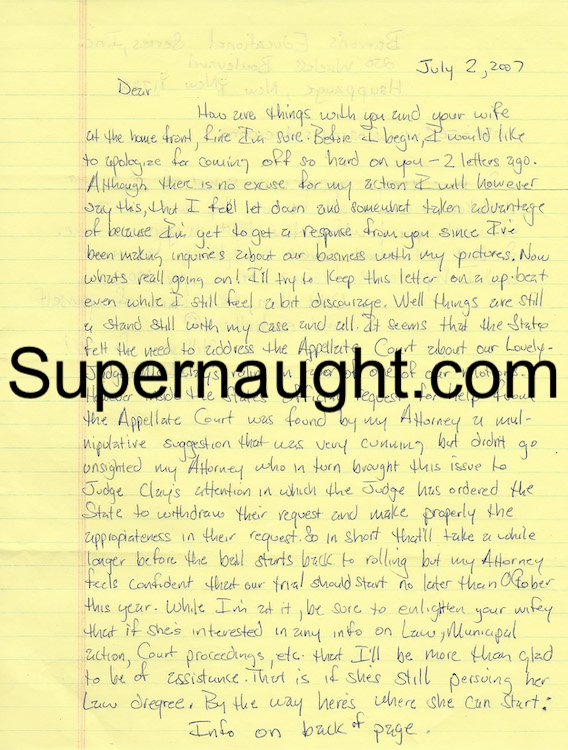 July 2, 2007
Dear
How are things with you and your wife
at the home front, fine I'm sure. Before I begin, I would like
to apologize for coming off so hard on you - 2 letters ago.
Although there is no excuse for my action I will however
say this, that I feel let down and somewhat taken advantage
of because I'm yet to get a response from you since I've
been making inquiries about our business with my pictures. Now
whats reall going on! I'll try to keep this letter on a up-beat
even while I still feel a bit discourage. Well things are still
a stand still with my case and all. It seems that the State
felt the need to address the Appellate Court about our Lovely-
Supernaught.com
the Appellate Court was found by my Attorney a mul-
nipulative suggestion that was very cunning but didn't go
unsighted my Attorney who in turn brought this issue to
Judge Clay's attention in which the Judge has ordered the
State to withdraw their request and make properly the
appropiateness in their request. So in short that'll take a while
longer before the ball starts back to rolling but my Attorney
feels confident that our trial should start no later than October
this year. While I'm at it, be sure to enlighten your wifey
that if she's interested in any info on Law, Municipal
action, Court proceedings, etc. that I'll be more than glad
to be of assistance. That is if she's still persuing her
Law dregree. By the way here's where she can start:
Info on back of page.